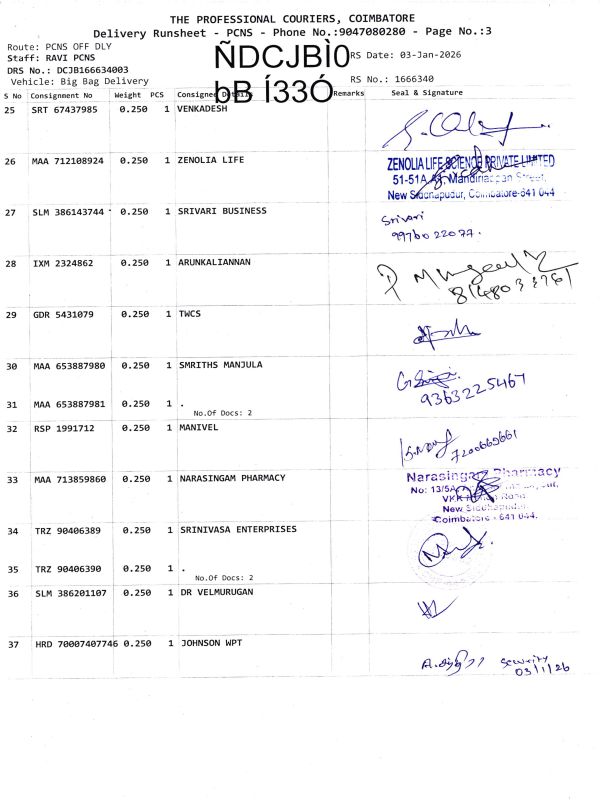 THE PROFESSIONAL COURIERS, COIMBATORE
Delivery Runsheet - PCNS - Phone No.:9047080280 - Page No.:3
Route: PCNS OFF DLY
Staff: RAVI PCNS
DRS No.: DCJB166634003
Vehicle: Big Bag Delivery
ÑDCJBÌ0
bB Í33Ó
RS Date: 03-Jan-2026
RS No.: 1666340
S No Consignment No Weight PCS Consignee Details Remarks Seal & Signature
25 SRT 67437985 0.250 1 VENKADESH
26 MAA 712108924 0.250 1 ZENOLIA LIFE
ZENOLIA LIFE SCIENCE PRIVATE LIMITED
51-51A, Street,
New Siddhapudur, Coimbatore-641 044
27 SLM 386143744 0.250 1 SRIVARI BUSINESS
Srivari
9976022077.
28 IXM 2324862 0.250 1 ARUNKALIANNAN
29 GDR 5431079 0.250 1 TWCS
30 MAA 653887980 0.250 1 SMRITHS MANJULA
9363225467
31 MAA 653887981 0.250 1 .
No.Of Docs: 2
32 RSP 1991712 0.250 1 MANIVEL
7200665661
33 MAA 713859860 0.250 1 NARASINGAM PHARMACY
Narasingam Pharmacy
No: 13/5A
VKK Road
New Siddhapudur
Coimbatore - 641 044.
34 TRZ 90406389 0.250 1 SRINIVASA ENTERPRISES
35 TRZ 90406390 0.250 1 .
No.Of Docs: 2
36 SLM 386201107 0.250 1 DR VELMURUGAN
37 HRD 70007407746 0.250 1 JOHNSON WPT
Security
03/1/26